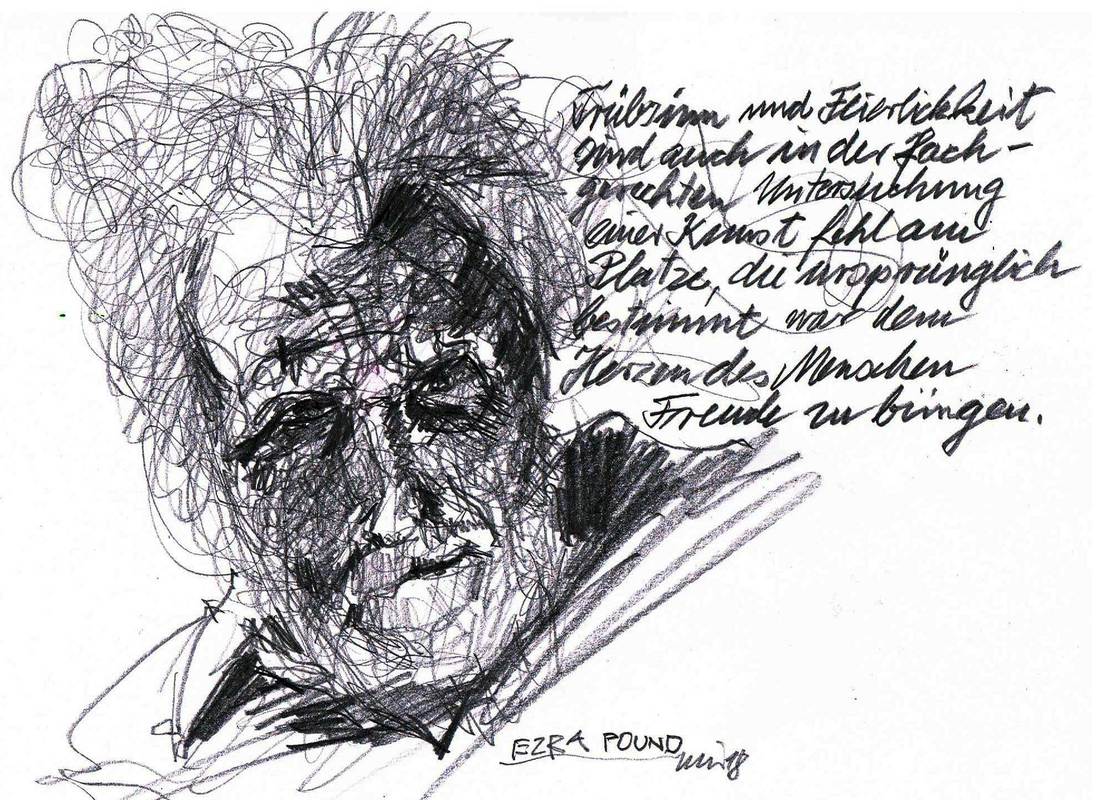 Trübsinn und Feierlichkeit
sind auch in der fach-
gerechten Untersuchung
einer Kunst fehl am
Platze, die ursprünglich
bestimmt war dem
Herzen des Menschen
Freude zu bringen.
EZRA POUND